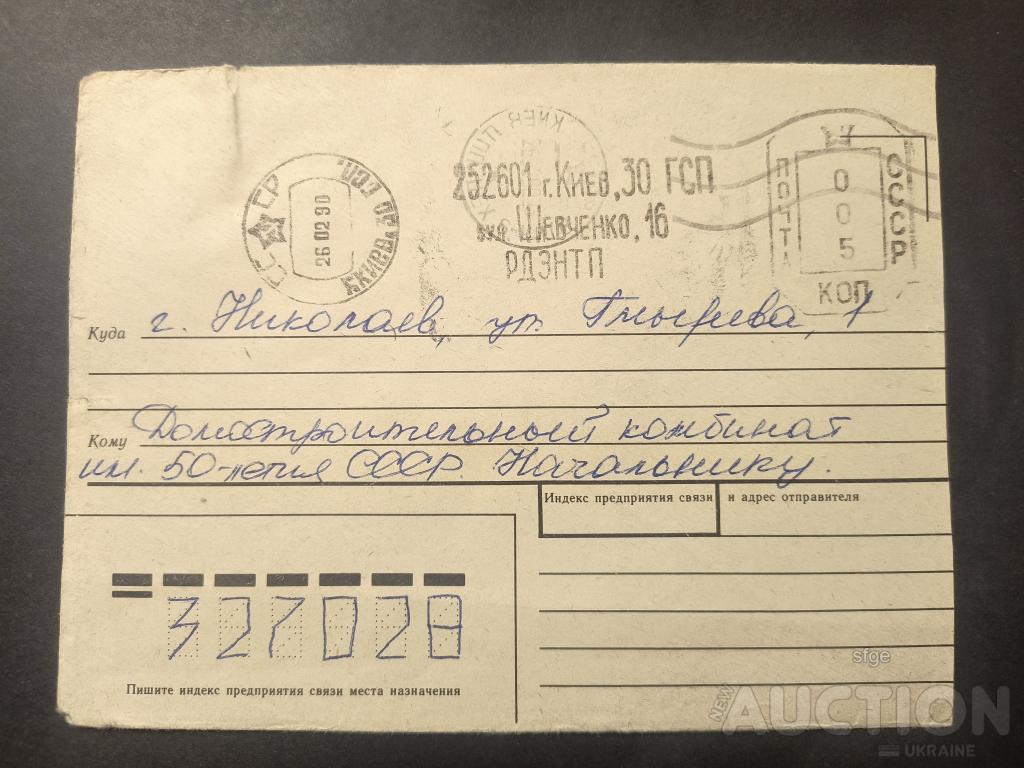 СССР
26 02 90
252601 г. Киев, 30 ГСП
Шевченко, 16
РДЭНТП
ПОЧТА
СССР
005
КОП
Куда г. Николаев, ул. Гмырева, 1
Кому Домостроительный комбинат
им. 50-летия СССР. Начальнику.
Индекс предприятия связи и адрес отправителя
327028
Пишите индекс предприятия связи места назначения
sfge
NEW AUCTION
UKRAINE